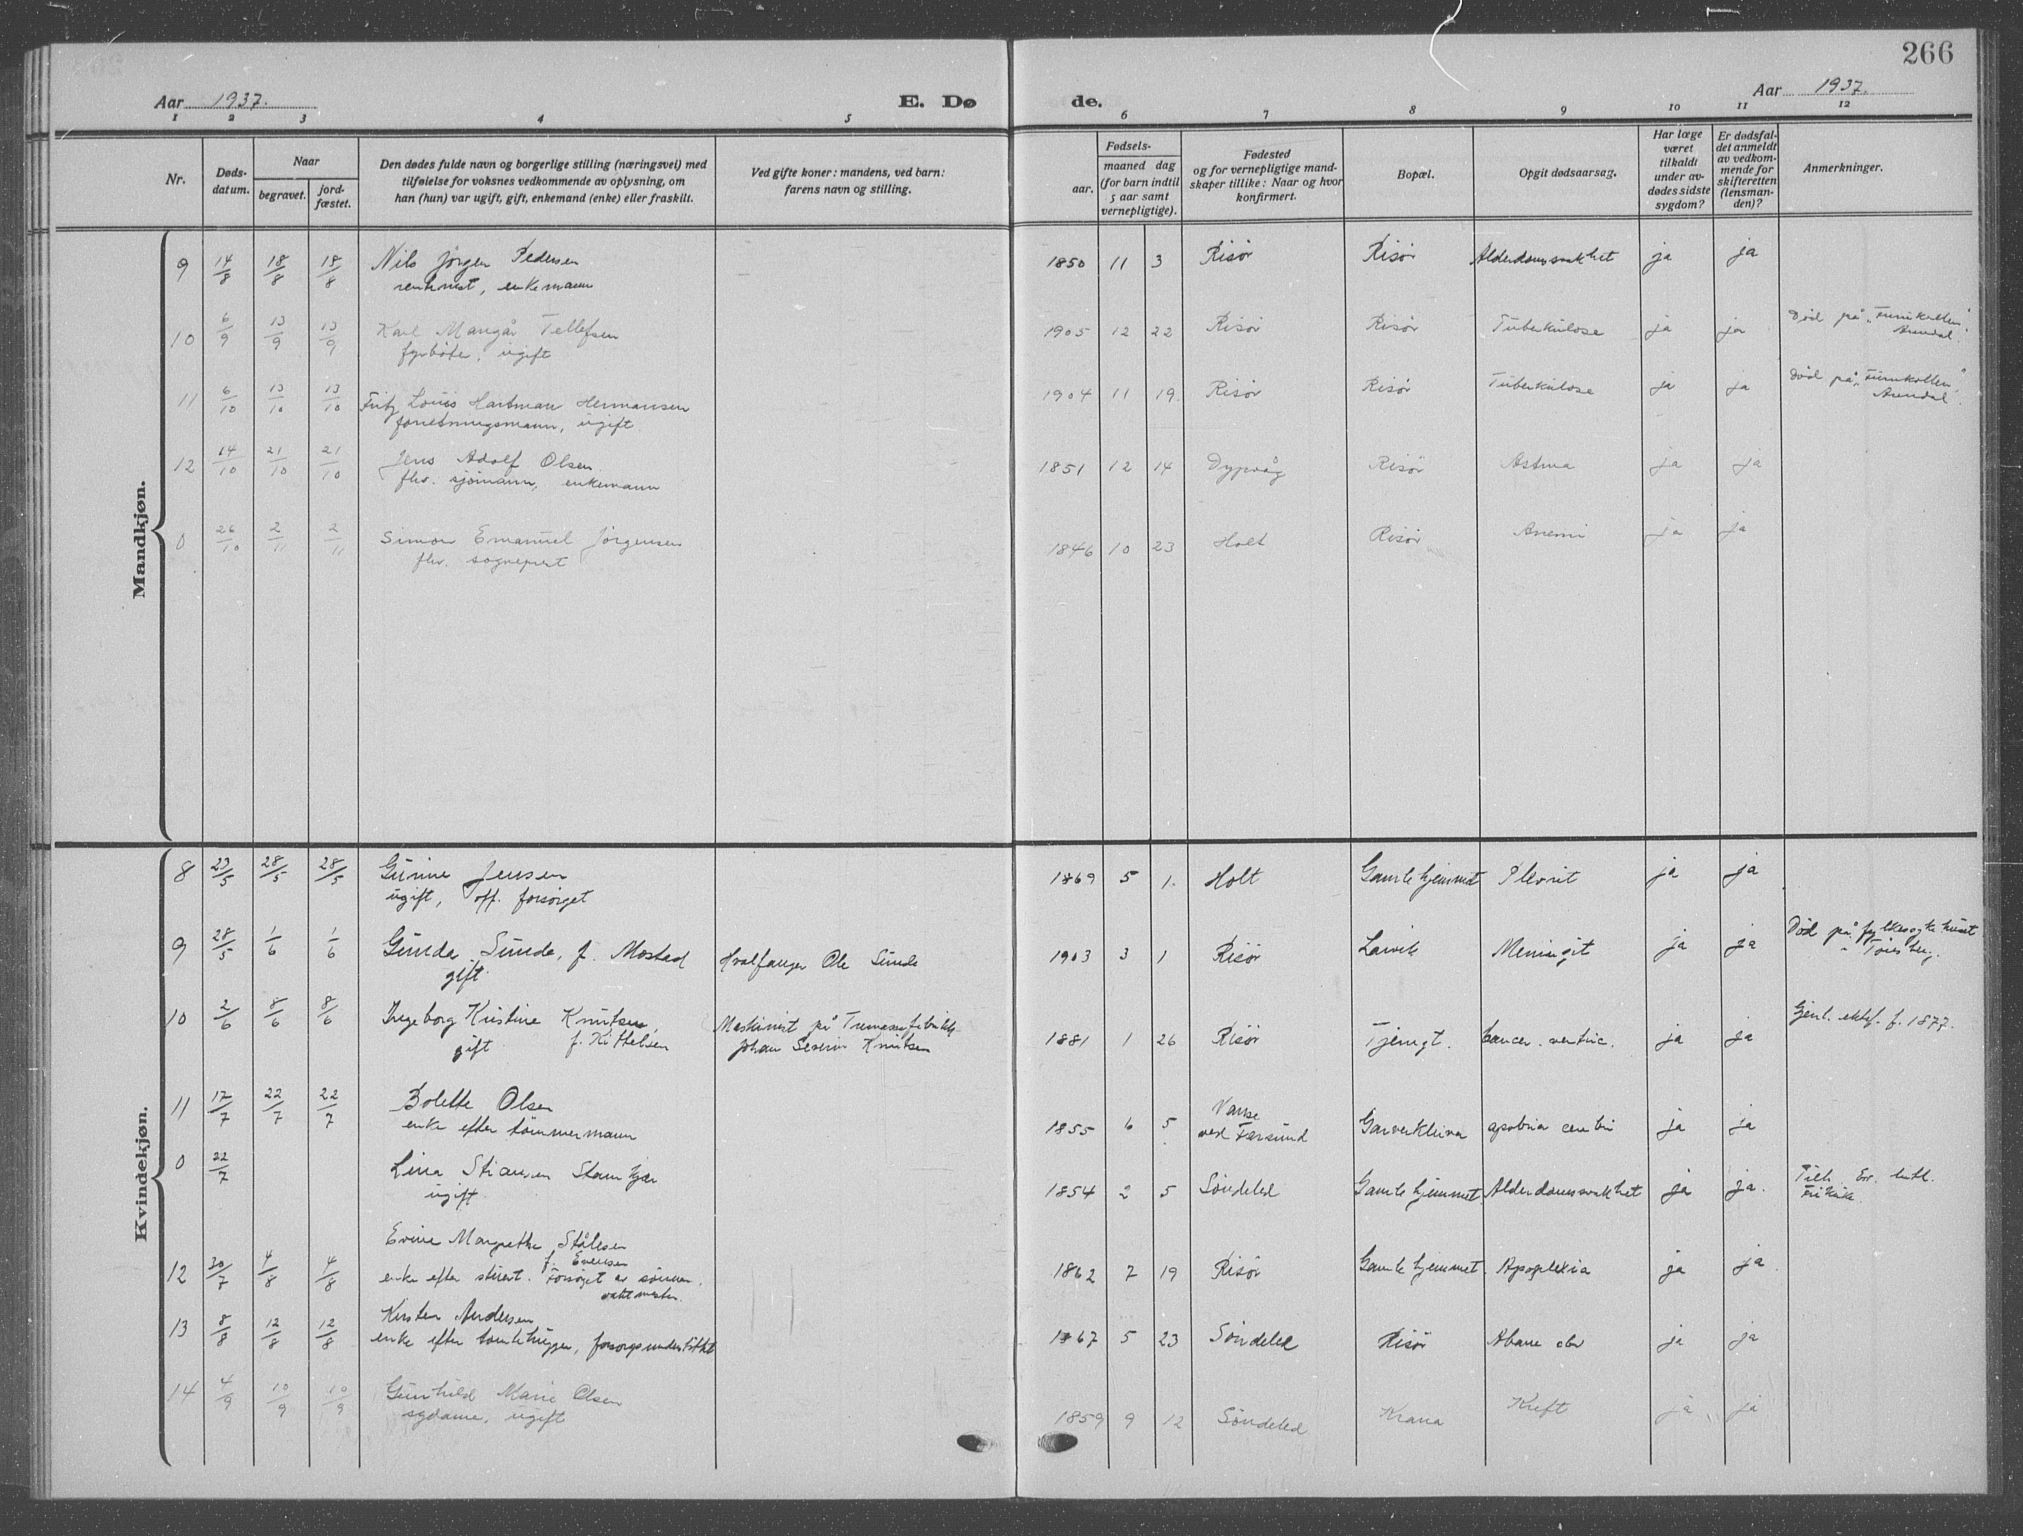 266
Aar 1937.
E. Dø
de.
Aar 1937.
1 2 3 4 5 6 7 8 9 10 11 12
Nr.
Døds-
datum.
Naar
begravet.
jord-
fæstet.
Den dødes fulde navn og borgerlige stilling (næringsvei) med
tilføielse for voksnes vedkommende av oplysning, om
han (hun) var ugift, gift, enkemand (enke) eller fraskilt.
Ved gifte koner: mandens, ved barn:
farens navn og stilling.
Fødsels-
aar.
maaned dag
(for barn indtil
5 aar samt
vernepligtige).
Fødested
og for vernepligtige mand-
skaper tillike: Naar og hvor
konfirmert.
Bopæl.
Opgit dødsaarsag.
Har læge
været
tilkaldt
under av-
dødes sidste
sygdom?
Er dødsfal-
det anmeldt
av vedkom-
mende for
skifteretten
(lensman-
den)?
Anmerkninger.
Mandkjøn.
9 14/8 18/8 18/8 Nils Jörgen Pedersen 1850 11 3 Risör Risör Alderdomssvakhet ja ja
rentenist, enkemann
10 6/9 13/9 13/9 Karl Mangår Tellefsen 1905 12 22 Risör Risör Tuberkulose ja ja Död på "Furukollen",
fyrböter, ugift Arendal.
11 6/10 13/10 13/10 Fritz Louis Hartman Hermansen 1904 11 19. Risör Risör Tuberkulose ja ja Död på "Furukollen"
forretningsmann, ugift Arendal.
12 14/10 21/10 21/10 Jens Adolf Olsen 1851 12 14 Dypvåg Risör Astma ja ja
fhv. sjömann, enkemann
0 26/10 2/11 2/11 Simon Emanuel Jörgensen 1846 10 23 Holt Risör Anemi ja ja
fhv. sogneprest
Kvindekjøn.
8 23/5 28/5 28/5 Gunne Jensen 1869 5 1. Holt Gamlehjemmet Plevrit ja ja
ugift, off. forsörget
9 28/5 1/6 1/6 Gunda Sunde, f. Mostad Hvalfanger Ole Sunde 1903 3 1 Risör Larvik Meningit ja ja Död på fylkessykehuset
gift i Tönsberg.
10 2/6 8/6 8/6 Ingeborg Kristine Knutsen, Maskinist på Tremassefabrikk 1881 1 26 Risör Tjenngt. Cancer. ventric. ja ja f. 1877.
gift f. Kittelsen Johan Severin Knutsen
11 17/7 22/7 22/7 Bolette Olsen 1855 6 5 Vanse ved Farsund Garverkleiva ja ja
enke efter tömmermann
0 22/7 Lina Stiansen Stamkjær 1854 2 5 Söndeled Gamlehjemmet Alderdomssvakhet ja ja.
ugift
Evine Margrethe Stålesen
f. Evensen
12 30/7 4/8 4/8 enke efter stuert. Forsörget av sönnen, 1862 7 19 Risör Gamlehjemmet Apoplexia ja ja
vaktmester.
Kirsten Andersen
13 8/8 12/8 12/8 enke efter tomtehugger, forsorgsunderstöttet 1867 5 23 Söndeled Risör ja ja
14 4/9 10/9 10/9 Gunhild Marie Olsen 1859 9 12 Söndeled Krana Kreft ja ja
sydame, ugift